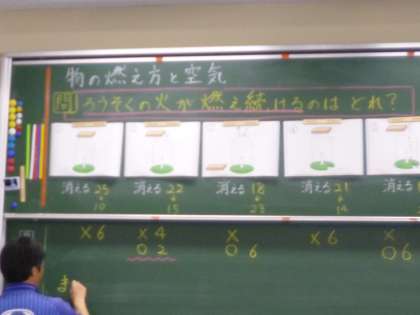 物の燃え方と空気
問 ろうそくの火が燃え続けるのはどれ?
消える 25 消える 22 消える 18 消える 21 消える
10 15 23 14
×6 ×4 × ×6 ×
○2 ○6 ○6
ま